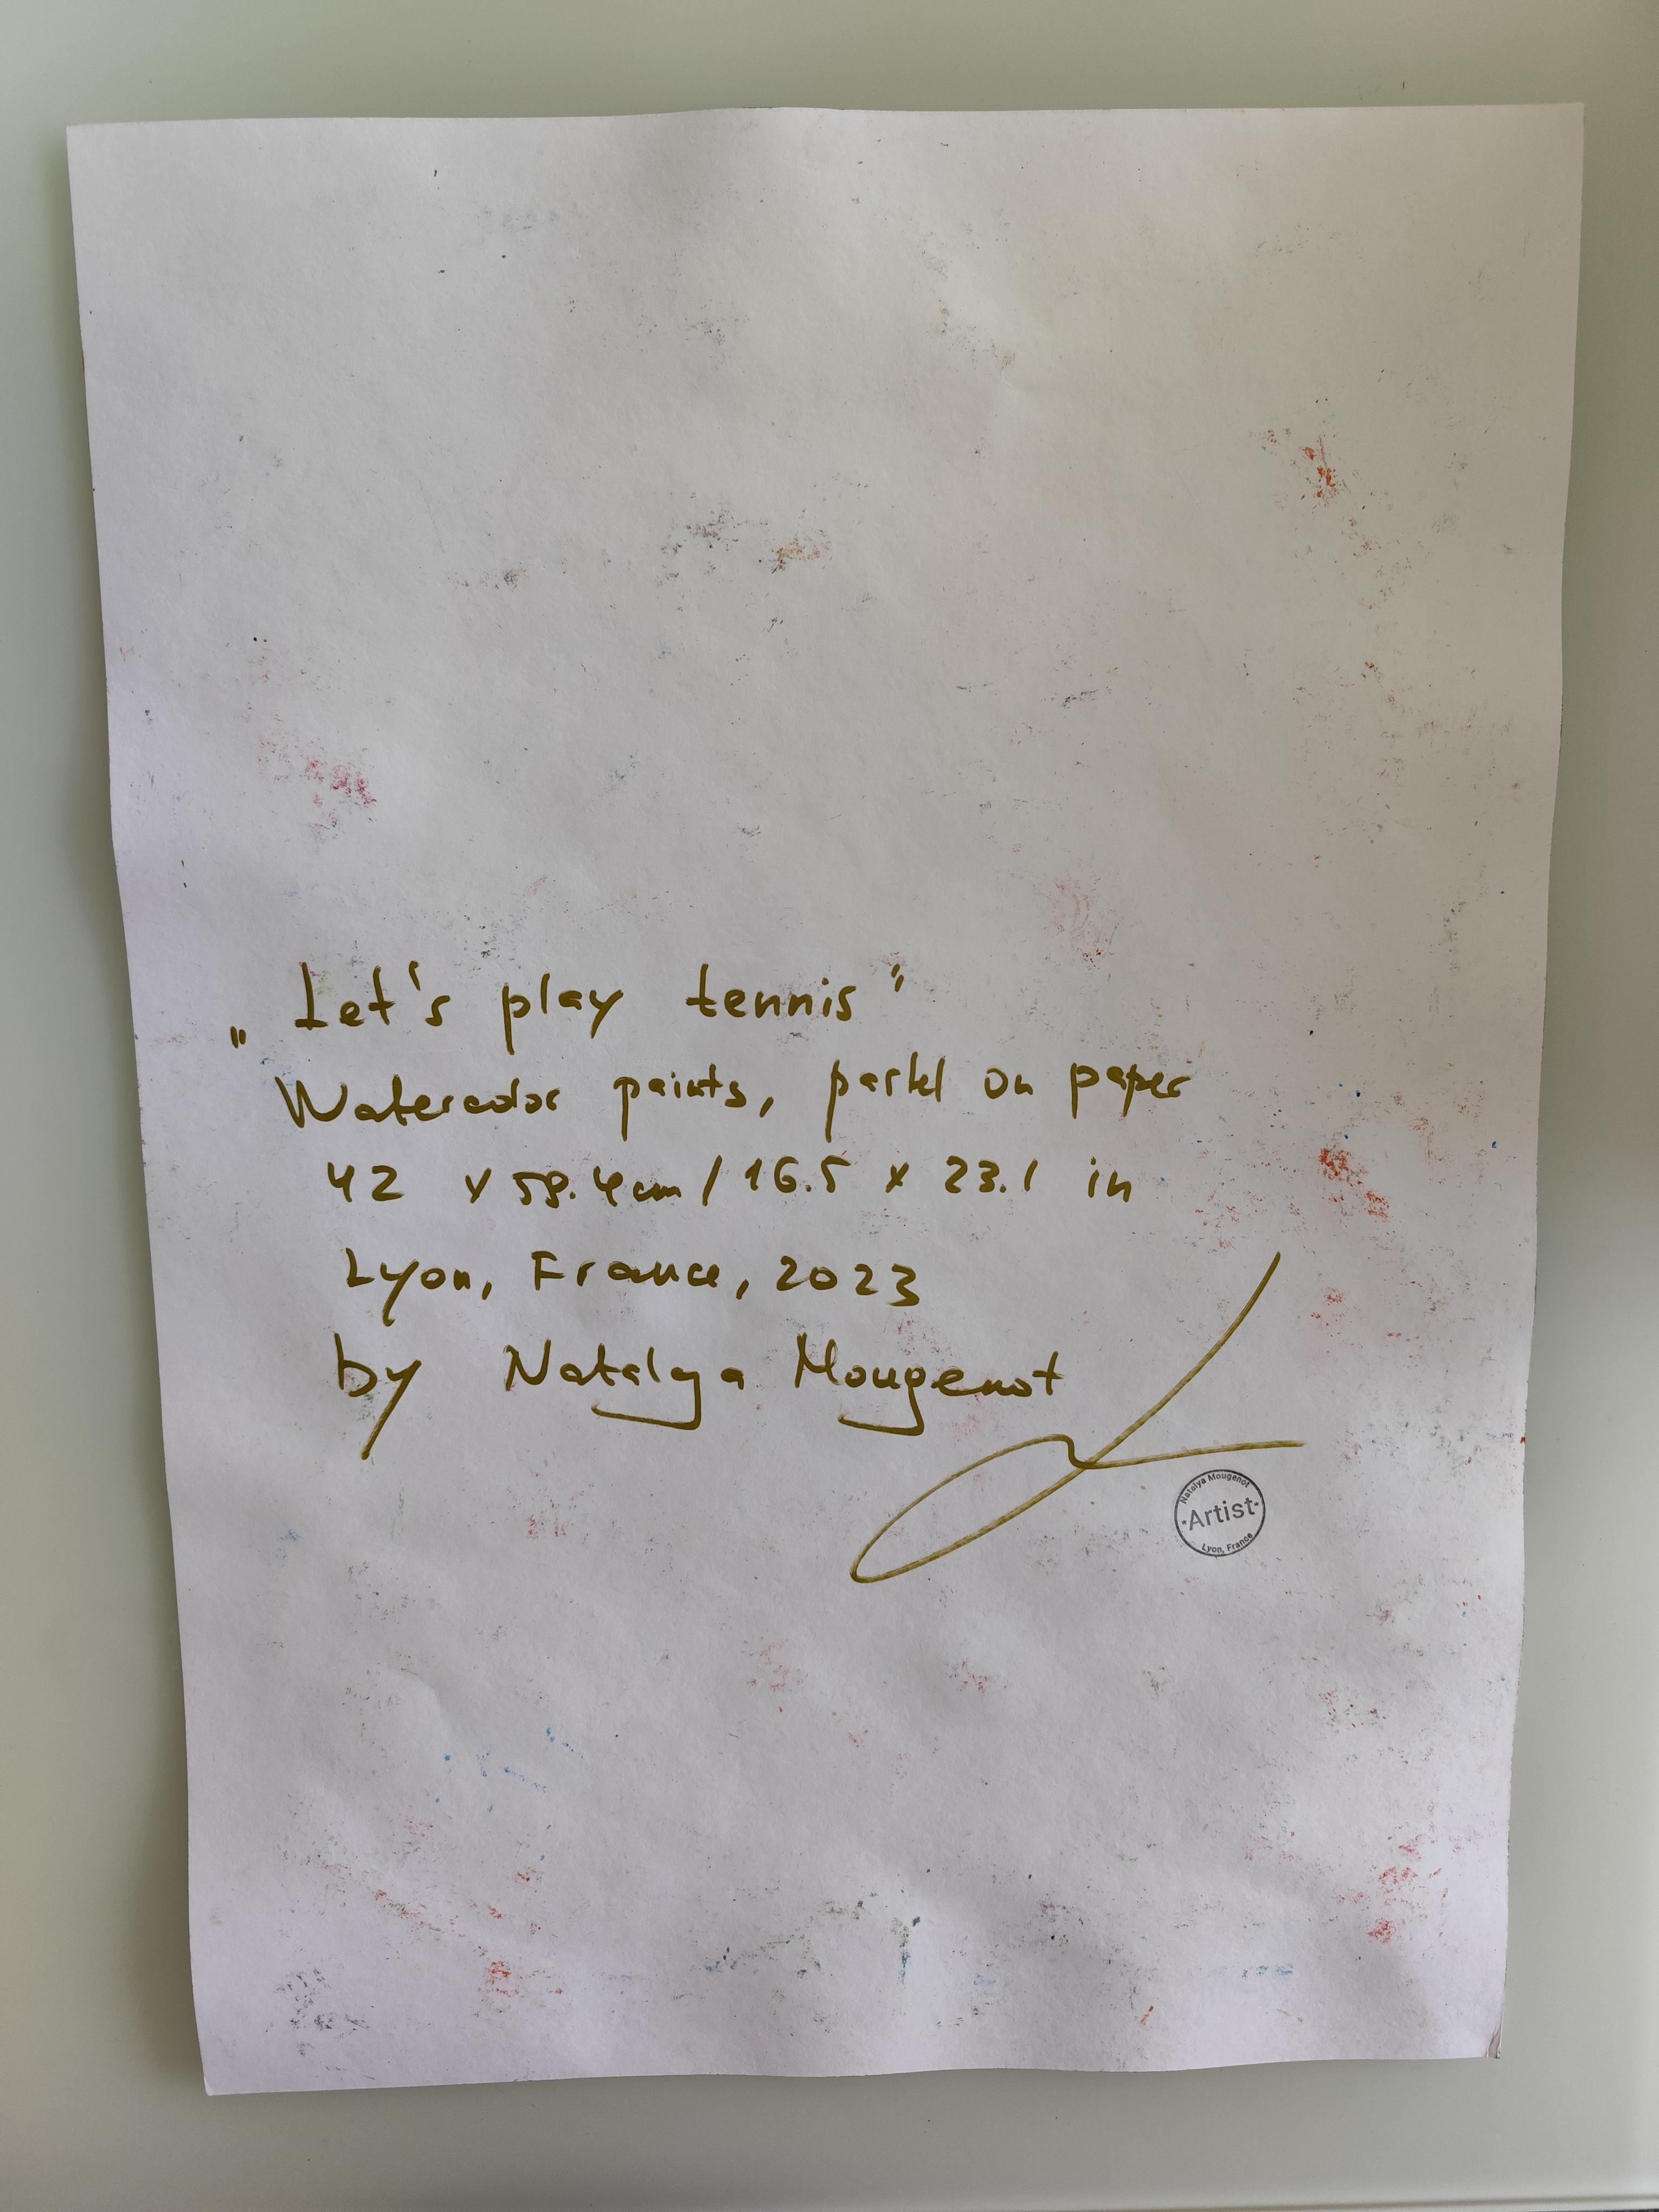 „Let's play tennis"
Watercolor paints, pastel on paper
42 x 59.4cm / 16.5 x 23.1 in
Lyon, France, 2023
by Natalya Mougenot
Natalya Mougenot
•Artist•
Lyon, France